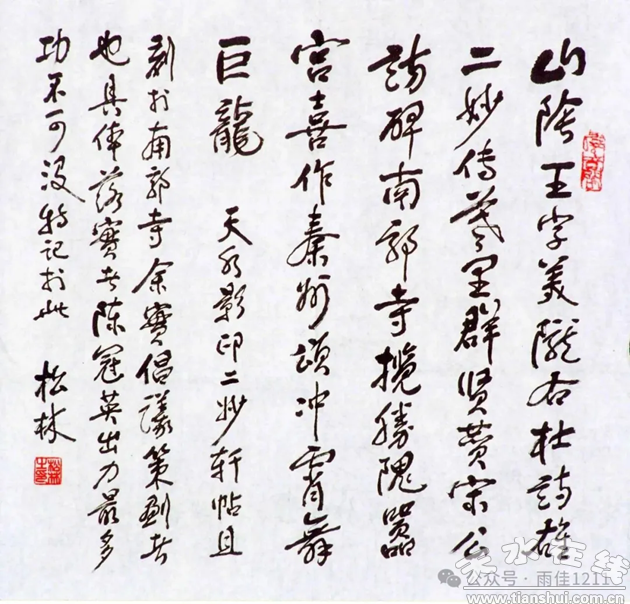 山陰王字美隴右杜詩雄
二妙傳羲里群贤贯宋公
訪碑南郭寺攬勝隗囂
宫喜作秦州颂冲霄舞
巨龍 天水影印二妙轩帖且
刻於南郭寺余實倡議策劃者
也具体落實者陈冠英出力最多
功不可没特记於此 松林
公众号·雨佳1211
天水在线
www.tianshui.com.cn